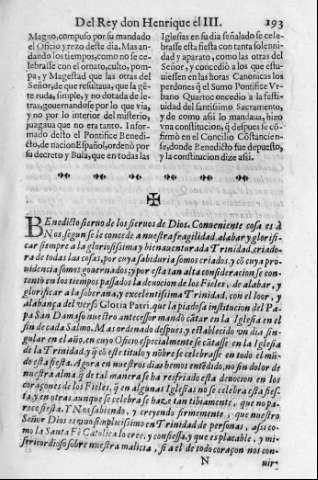 Del Rey don Henrique el III. 193
Magno, compuso por su mandado
el Oficio y rezo deste dia. Mas an-
dando los tiempos, como no se ce-
lebrasse con el ornato, culto, pom-
pa, y Magestad que las otras del
Señor, de que resultaua, que la gẽ-
te ruda, simple, y no dotada de le-
tras, gouernandose por lo que via,
y no por lo interior del misterio,
juzgaua que no era tanto. Infor-
mado desto el Pontifice Benedi-
cto, de nacion Español, ordenò por
su decreto y Bula, que en todas las
Iglesias en su dia señalado se cele-
brasse esta fiesta con tanta solenni-
dad y aparato, como las otras del
Señor, y concediò a los que estu-
uiessen en las horas Canonicas los
perdones q̃ el Sumo Pontifice Vr-
bano Quarto concedio a la festi-
uidad del santissimo Sacramento,
y de como assi lo mandaua, hizo
vna constitucion, q̃ despues se cõ-
firmò en el Concilio Cõstancien-
se, donde Benedicto fue depuesto,
y la constitucion dize assi.
BEnedicto sieruo de los sieruos de Dios. Conueniente cosa es à
Nos, segun se le concede a nuestra fragilidad, alabar y glorifi-
car siempre a la gloriosissima y bienauenturada Trinidad, criado-
ra de todas las cosas, por cuya sabiduria somos criados, y cõ cuya pro-
uidencia somos gouernados; y por esta tan alta consideracion se con-
tinuò en los tiempos passados la deuocion de los Fieles, de alabar, y
glorificar a la soberana, y excelentissima Trinidad, con el loor, y
alabança del verso Gloria Patri, que la piadosa institucion del Pa-
pa San Damaso nuestro antecessor mandò cãtar en la Iglesia en el
fin de cada Salmo. Mas ordenado despues, y establecido vn dia sin-
gular en el año, en cuyo Oficio especialmente se cãtasse en la Iglesia
de la Trinidad, y q̃ cõ este titulo y nõbre se celebrasse en todo el mũ-
do esta fiesta. Agora en nuestros dias hemos entẽdido, no sin dolor de
nuestra alma, q̃ de tal manera se ha resfriado esta deuocion en los
coraçones de los Fieles, q̃ en algunas Iglesias no se celebra esta fies-
ta, y en otras aunque se celebra se haze tan tibiamente, que no pa-
rece fiesta. Y Nos sabiendo, y creyendo firmemente, que nuestro
Señor Dios es vno simplicissimo en Trinidad de personas, assi co-
mo la Santa Fè Catolica lo cree, y confiessa, y que es placable, y mi-
sericordioso sobre nuestra malicia, si a el de todo coraçon nos con-
N uir-